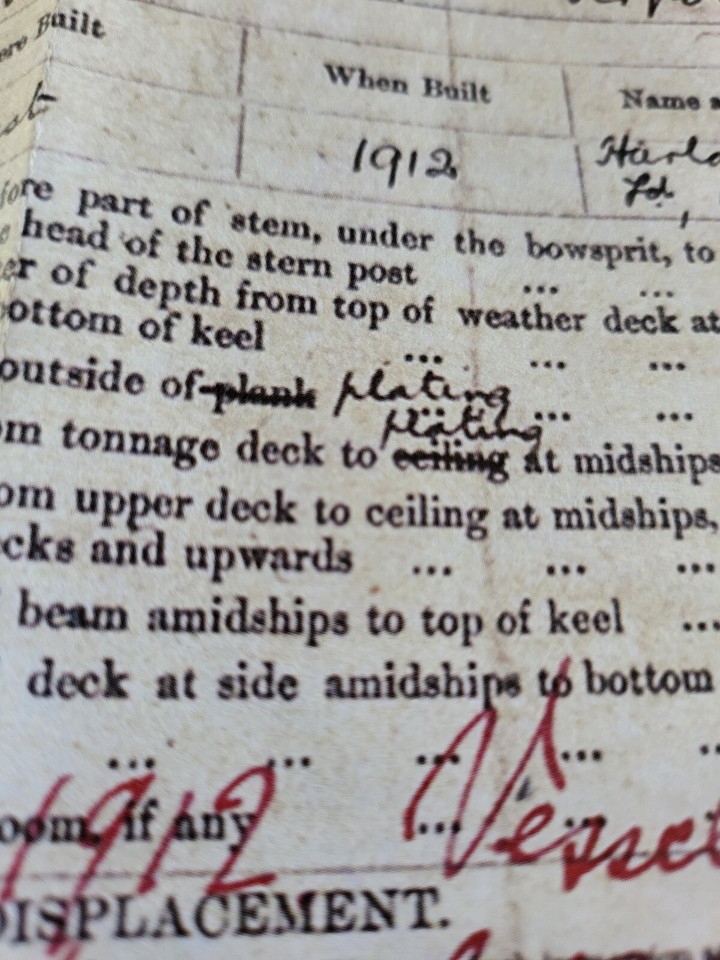 ere Built
When Built
Name a
1912
Harla
Ld,
fore part of stem, under the bowsprit, to
e head of the stern post ... ...
er of depth from top of weather deck at
bottom of keel ... ... ...
outside of plank plating ... ... ...
plating
om tonnage deck to ceiling at midships
om upper deck to ceiling at midships,
ecks and upwards ... ... ...
beam amidships to top of keel ...
deck at side amidships to bottom
... ... ... ... ..
oom, if any ... ...
1912 Vessel
DISPLACEMENT.